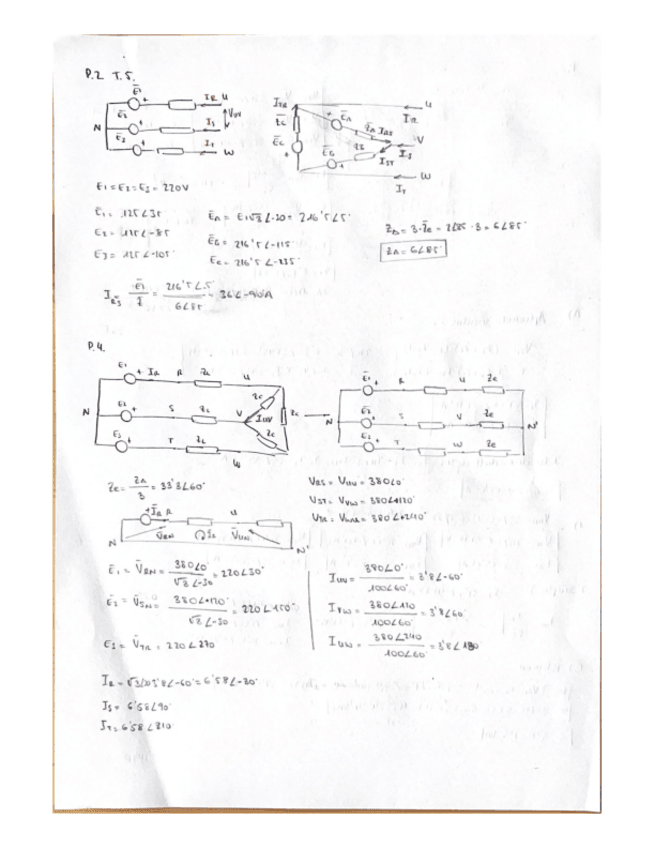 P.2 T.5.
E1 IR U
E2 IS VUV
N
E3 IT W
ITR U
IR
EC EA ZA IRS V
EB IS
IST W
IT
E1 = E2 = E3 = 220V
E1 = 125∠35
E2 = 125∠-85
E3 = 125∠-205
EA = E1√3∠-30 = 216'5∠5°
EB = 216'5∠-115
EC = 216'5∠-235
ZΔ = 3·Ze = 2∠85·3 = 6∠85°
ZΔ = 6∠85°
IRS = E1/Z = 216'5∠5/6∠85 = 36∠-90°A
P.4.
E1 IR R ZL U
N E2 S ZL V IUV ZC
E3 T ZL W
E1 R U Ze
N E2 S V Ze N'
E3 T W Ze
Ze = ZΔ/3 = 33'3∠60°
VRS = VUV = 380∠0°
VST = VVW = 380∠+120°
VTR = VWU = 380∠+240°
IR R U
N VRN IR VUN N'
E1 = VRN = 380∠0/√3∠-30 = 220∠30°
E2 = VSN = 380∠+120°/√3∠-30 = 220∠150°
E3 = VTN = 220∠270
IUV = 380∠0°/100∠60° = 3'8∠-60°
IVW = 380∠120/100∠60° = 3'8∠60°
IUW = 380∠240/100∠60° = 3'8∠180°
IR = √3∠30 3'8∠-60° = 6'58∠-30°
IS = 6'58∠90°
IT = 6'58∠210°